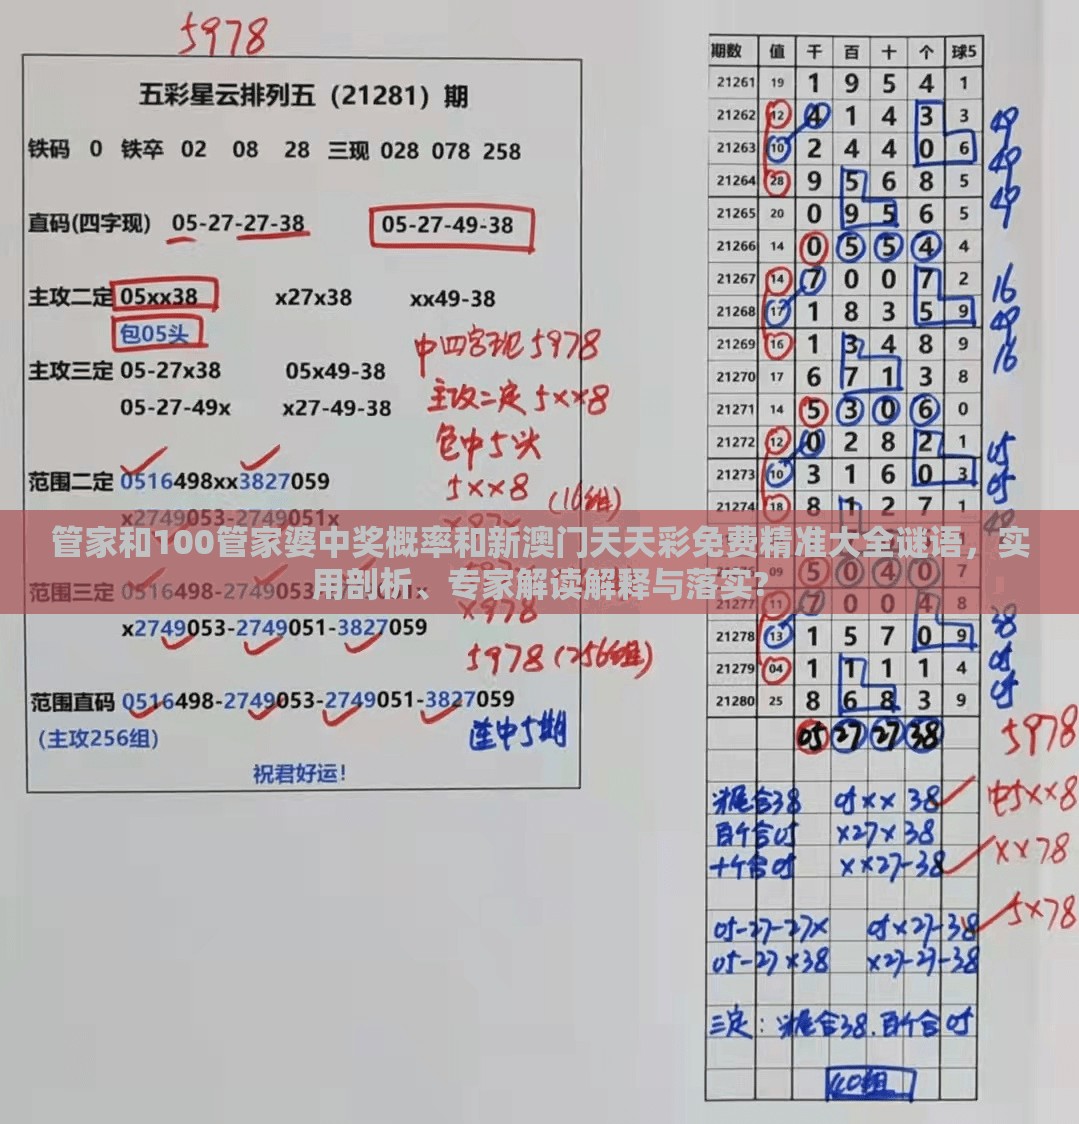 5978
五彩星云排列五（21281）期
铁码 0 铁卒 02 08 28 三现 028 078 258
直码(四字现) 05-27-27-38 05-27-49-38
主攻二定 05xx38 x27x38 xx49-38
包05头
主攻三定 05-27x38 05x49-38
05-27-49x x27-49-38
中四字现5978
主攻二定5××8
包中5头
5××8 (16组)
范围二定 0516498xx3827059
x2749053-2749051x
管家和100管家婆中奖概率和新澳门天天彩免费精准大全谜语，实
用剖析、专家解读解释与落实?
范围三定
x2749053-2749051-3827059
×978
5978(256组)
范围直码 0516498-2749053-2749051-3827059
(主攻256组)
连中5期
祝君好运!
期数 值 千 百 十 个 球5
21261 19 1 9 5 4 1
21262 12 4 1 4 3 3 49
21263 10 2 4 4 0 6 49
21264 28 9 5 6 8 5 49
21265 20 0 9 5 6 5
21266 14 0 5 5 4 4
21267 14 7 0 0 7 2 16
21268 17 1 8 3 5 9 49
21269 16 1 3 4 8 9 16
21270 17 6 7 1 3 8
21271 14 5 3 0 6 0
21272 12 0 2 8 2 1 05
21273 10 3 1 6 0 3 05
21274 18 8 1 2 7 1 49
09 5 0 4 0 7
21277 11 7 0 0 4 8 38
21278 13 1 5 7 0 9 05
21279 04 1 1 1 1 4 05
21280 25 8 6 8 3 9
05 27 27 38 5978
米尾合38 05×× 38 中5××8
百个合05 ×27×38 ××78
十个合05 ××27-38
05-27-27× 05×27-38 5×78
05-27×38 ×27-27-38
三定：米尾合38.百个合05
40组